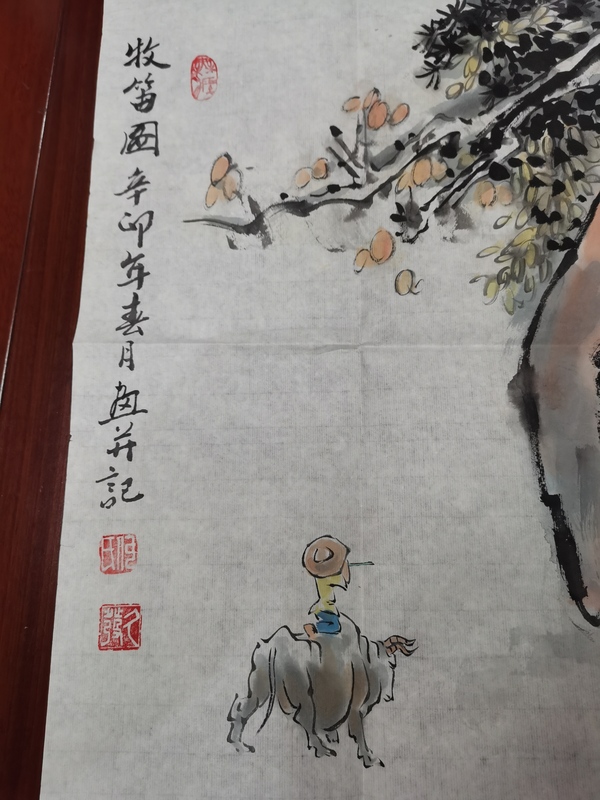 牧笛圖辛卯年春月畫并記